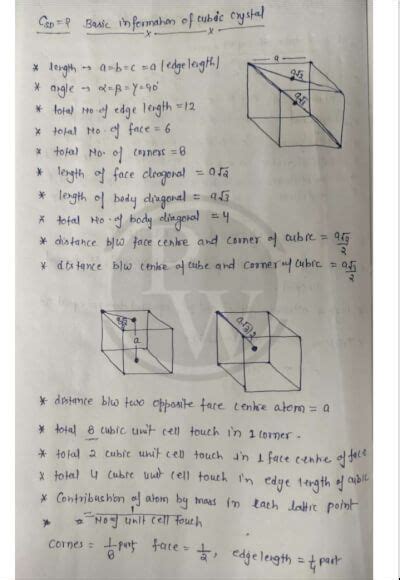 CSD=9 Basic information of cubic crystal
* length → a=b=c=a (edge length)
* angle → α=β=γ=90°
* total No. of edge length = 12
* total No. of face = 6
* total No. of corners = 8
* length of face diagonal = a√2
* length of body diagonal = a√3
* total No. of body diagonal = 4
* distance b/w face centre and corner of cubic = a√3/2
* distance b/w centre of cube and corner of cubic = a√3/2
a
a√2
a√3
PW
a√2/2
a
a√3/2
* distance b/w two opposite face centre atom = a
* total 8 cubic unit cell touch in 1 corner.
* total 2 cubic unit cell touch in 1 face centre of face
* total 4 cubic unit cell touch in edge length of cubic
* Contribushion of atom by mass in each lattic point
* = 1/No of unit cell touch
cornes = 1/8 part, face = 1/2, edge length = 1/4 part